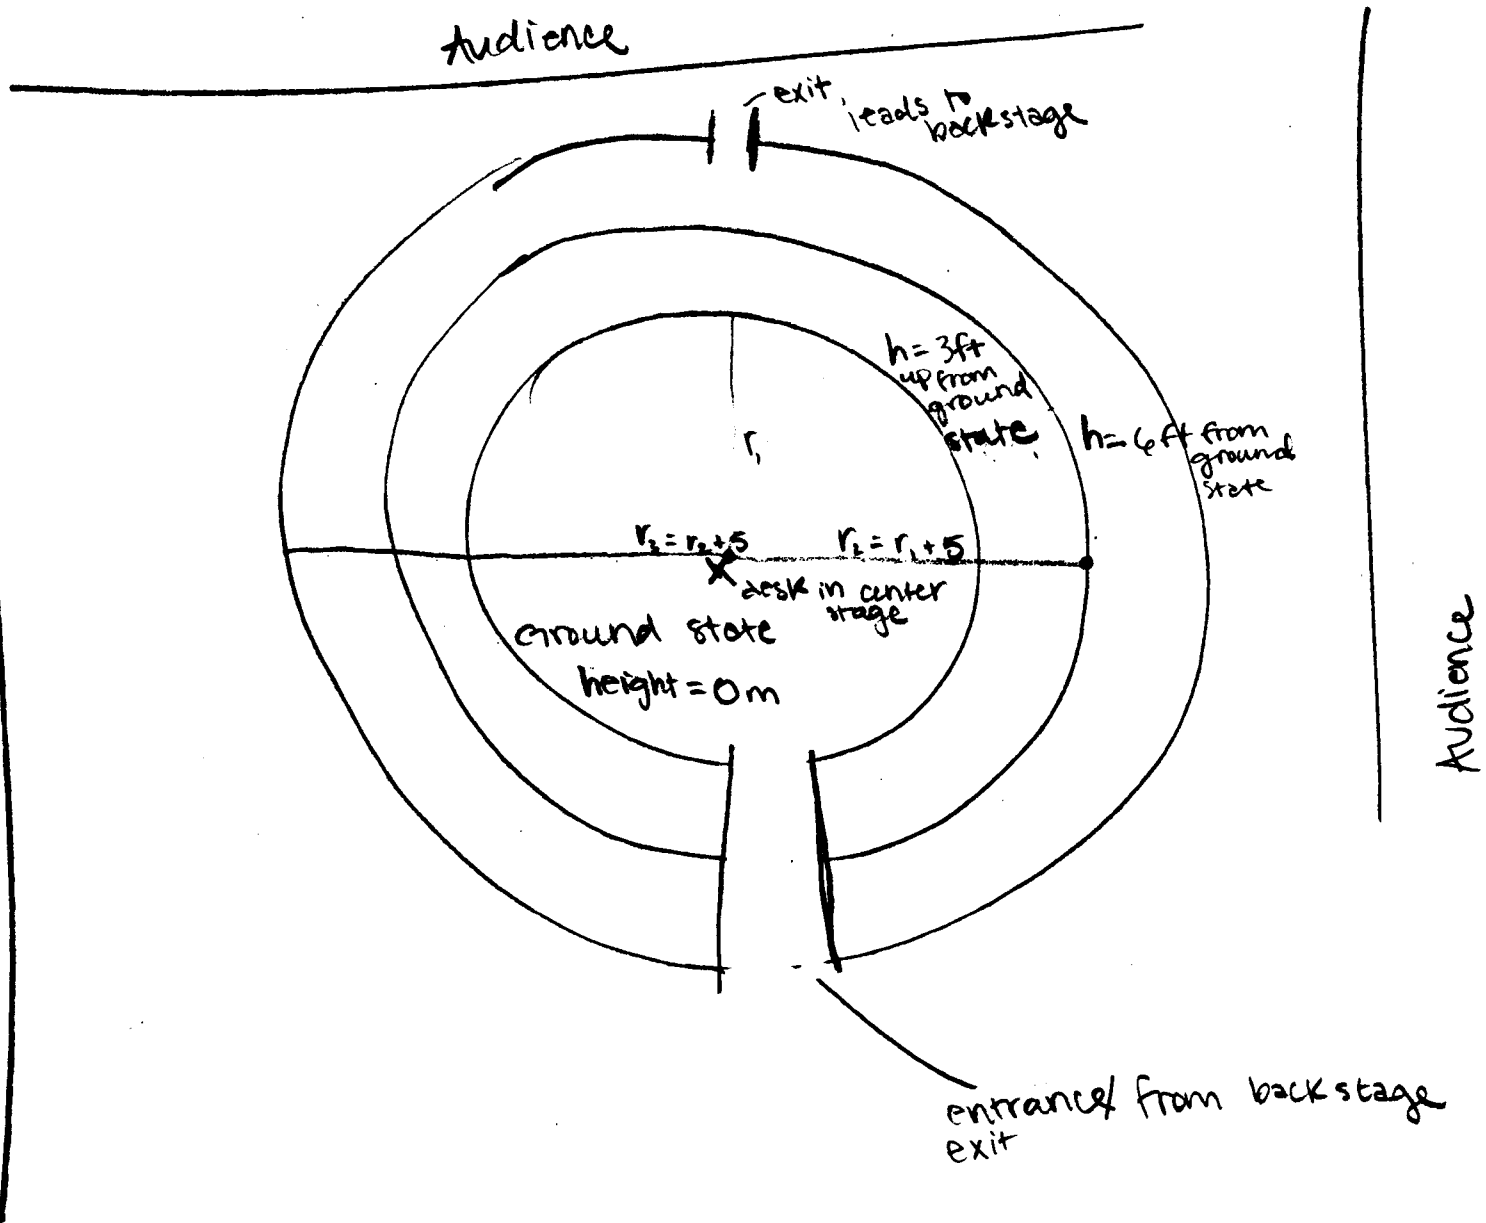 Audience
exit,
leads to
backstage
h = 3ft
up from
ground
state
h = 6ft from
ground
state
r₁
r₃ = r₂ + 5
r₂ = r₁ + 5
desk in center
stage
Ground state
height = 0m
Audience
entrance/ from backstage
exit